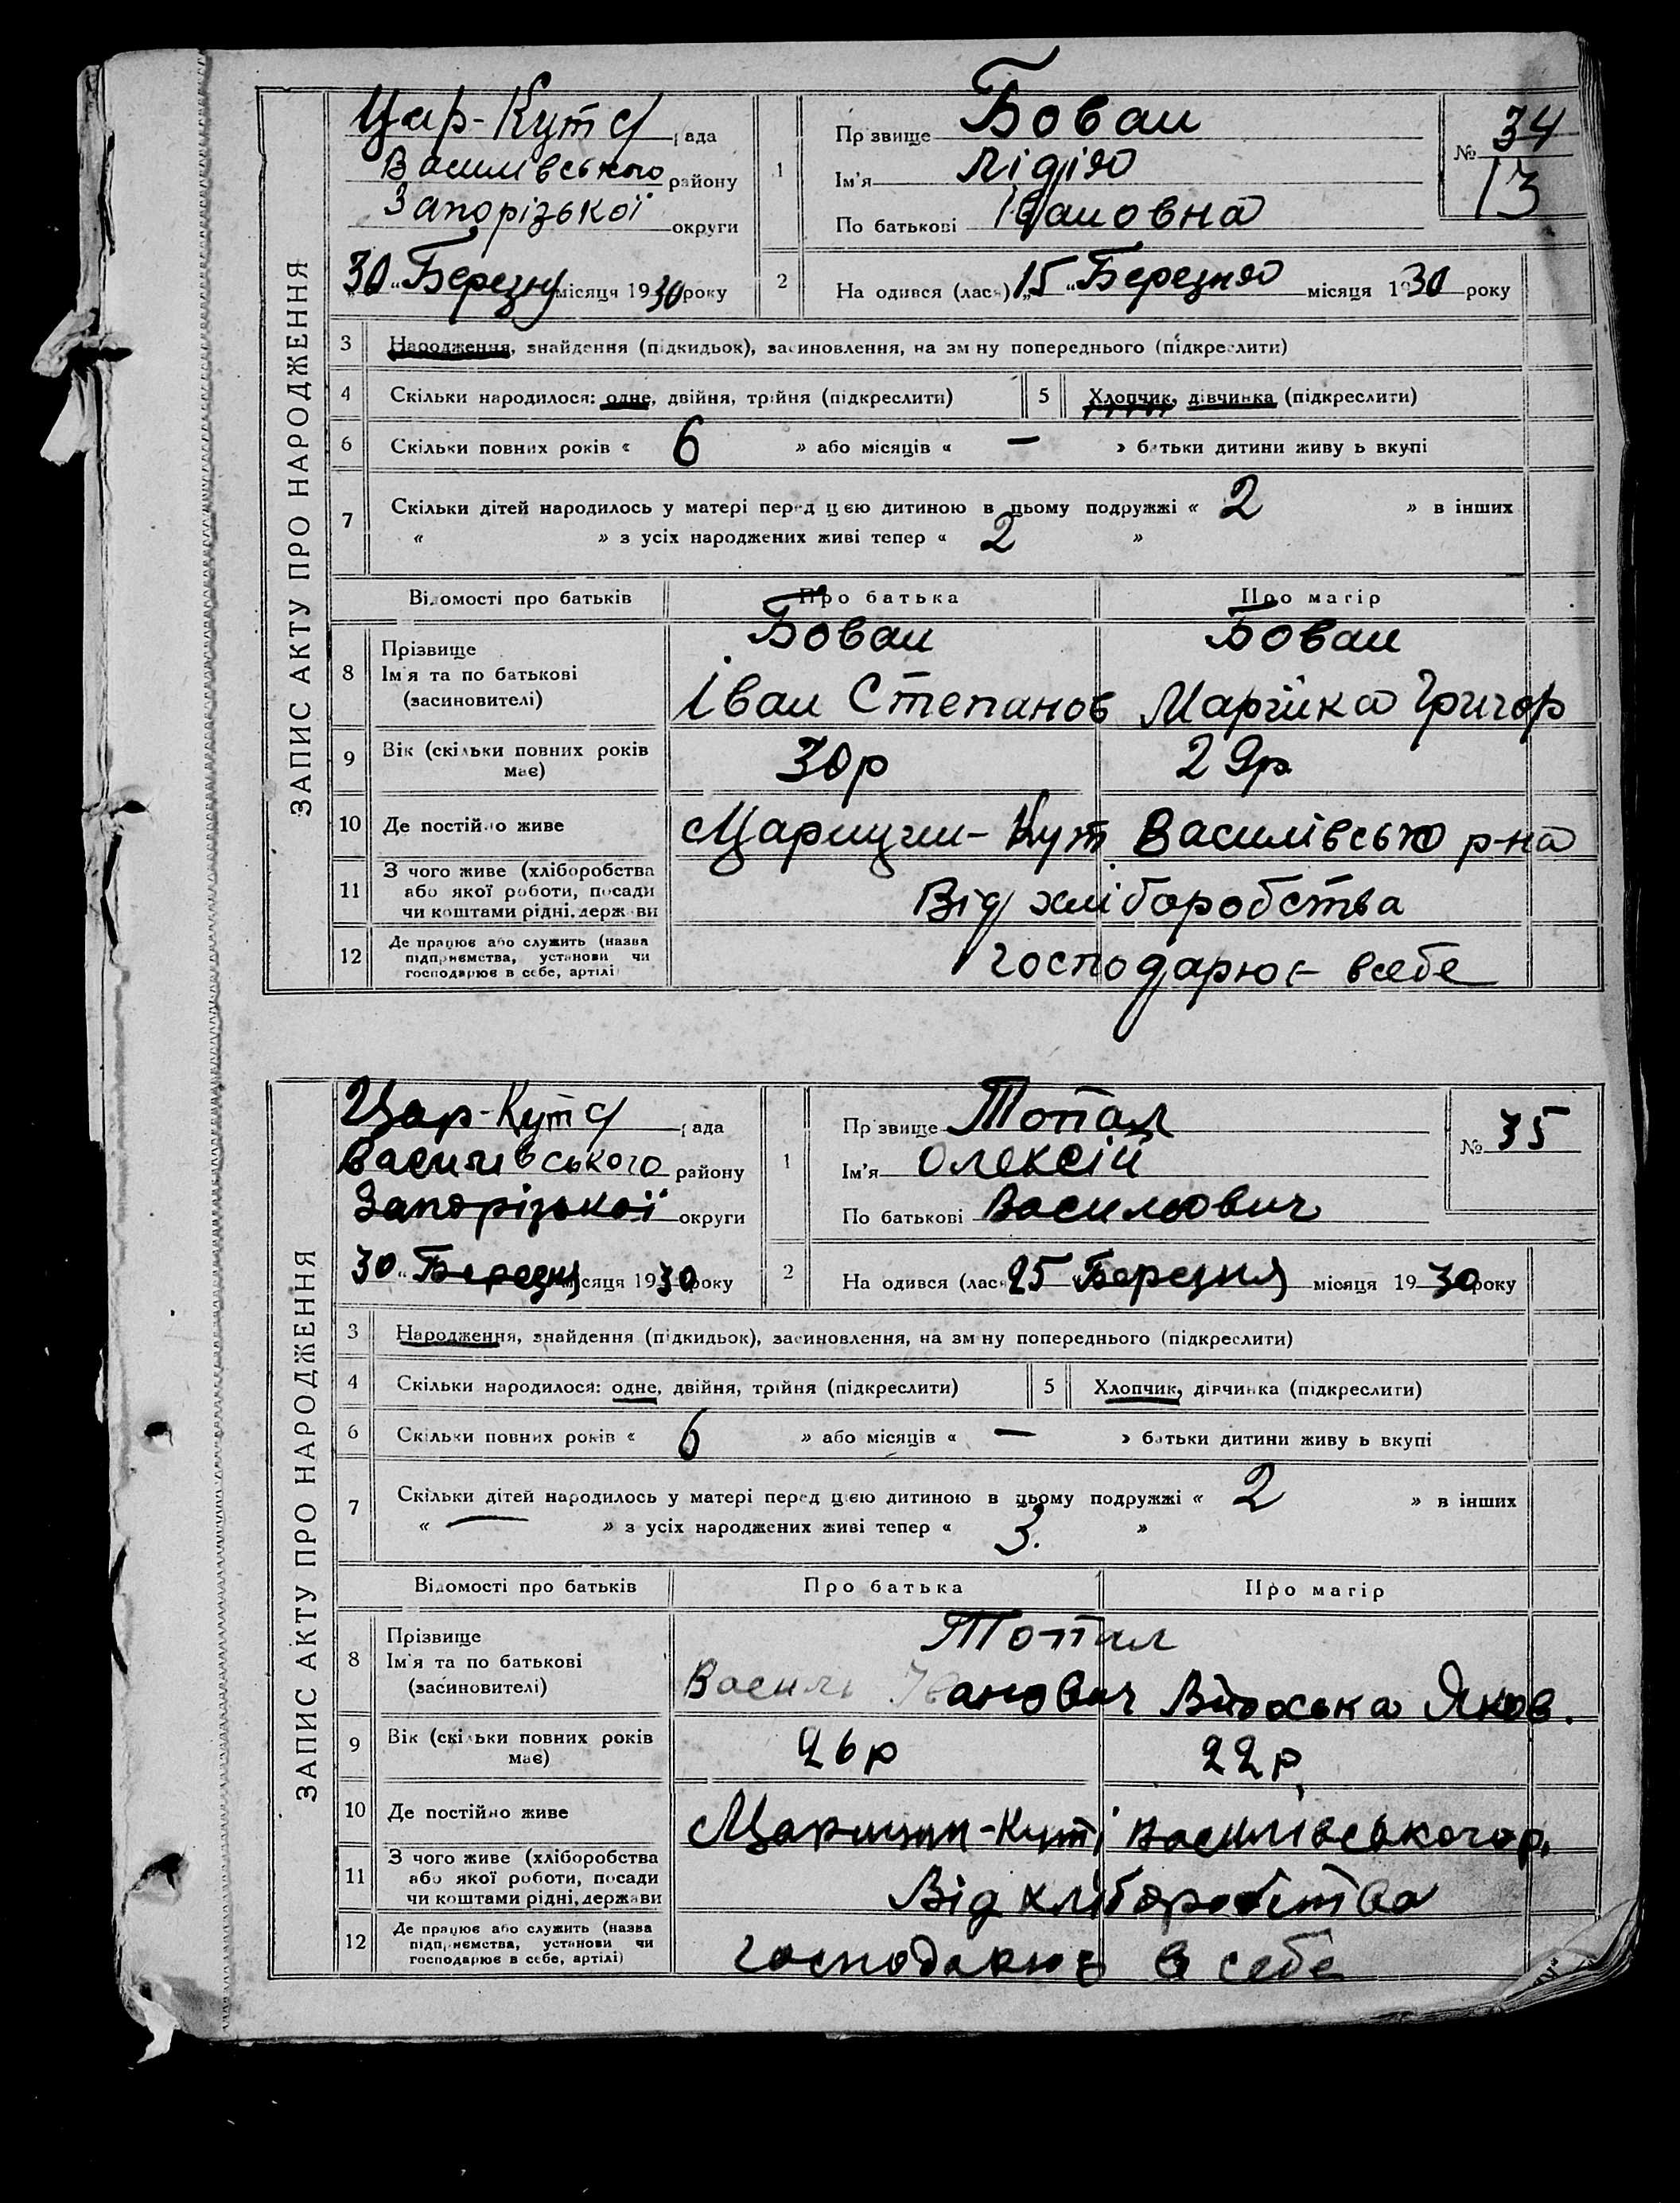 ЗАПИС АКТУ ПРО НАРОДЖЕННЯ
Цар-Кутс рада
Василівського району
Запорізької округи
„30“ Березня місяця 1930 року
1 Прізвище Бован
Ім'я Лідія
По батькові Івановна
№ 34
13
2 Народився (лася) „15“ Березня місяця 1930 року
3 Народження, знайдення (підкидьок), засиновлення, на зміну попереднього (підкреслити)
4 Скільки народилося: одне, двійня, трійня (підкреслити) 5 Хлопчик, дівчинка (підкреслити)
6 Скільки повних років « 6 » або місяців « — » батьки дитини живуть вкупі
7 Скільки дітей народилось у матері перед цією дитиною в цьому подружжі « 2 » в інших
« » з усіх народжених живі тепер « 2 »
Відомості про батьків Про батька Про матір
8 Прізвище Бован Бован
Ім'я та по батькові
(засиновителі) Іван Степанов Марійка Григор
9 Вік (скільки повних років має) 30р 29р
10 Де постійно живе Царицин-Кут Василівсько р-на
11 З чого живе (хліборобства
або якої роботи, посади
чи коштами рідні, держави Від хліборобства
12 Де працює або служить (назва
підприємства, установи чи
господарює в себе, артілі) господарює всебе
ЗАПИС АКТУ ПРО НАРОДЖЕННЯ
Цар-Кутс рада
Василівського району
Запорізької округи
30 „ Березня місяця 1930 року
1 Прізвище Топал
Ім'я Олексій
По батькові Васильович
№ 35
2 Народився (лася) 25 Березня місяця 1930 року
3 Народження, знайдення (підкидьок), засиновлення, на зміну попереднього (підкреслити)
4 Скільки народилося: одне, двійня, трійня (підкреслити) 5 Хлопчик, дівчинка (підкреслити)
6 Скільки повних років « 6 » або місяців « — » батьки дитини живуть вкупі
7 Скільки дітей народилось у матері перед цією дитиною в цьому подружжі « 2 » в інших
« — » з усіх народжених живі тепер « 3. »
Відомості про батьків Про батька Про матір
8 Прізвище Топал
Ім'я та по батькові
(засиновителі) Василь Іванович Яков.
9 Вік (скільки повних років має) 26р 22р
10 Де постійно живе Царицин-Куті Василівського р.
11 З чого живе (хліборобства
або якої роботи, посади
чи коштами рідні, держави Від хліборобства
12 Де працює або служить (назва
підприємства, установи чи
господарює в себе, артілі) господарює в себе